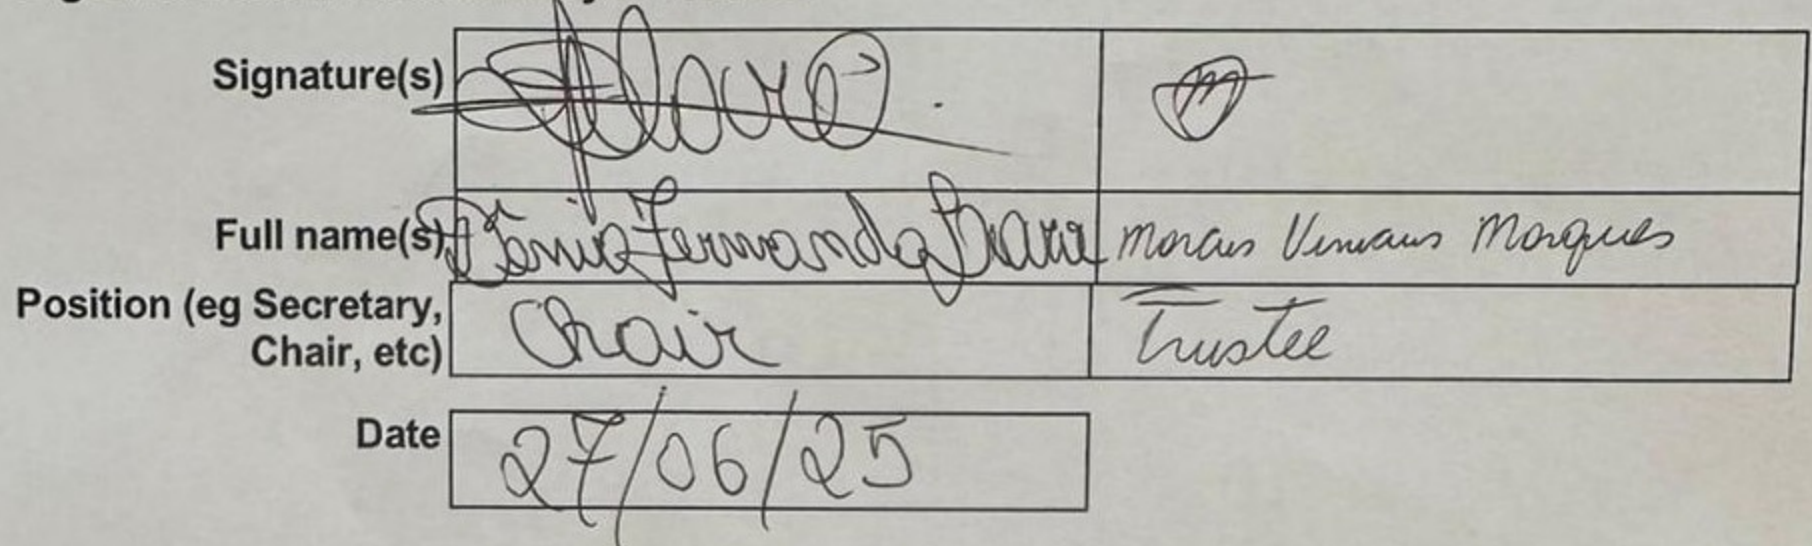 Signature(s)
Full name(s) Fernanda Marcus Vinicius Marques
Position (eg Secretary, Chair Trustee
Chair, etc)
Date 27/06/25